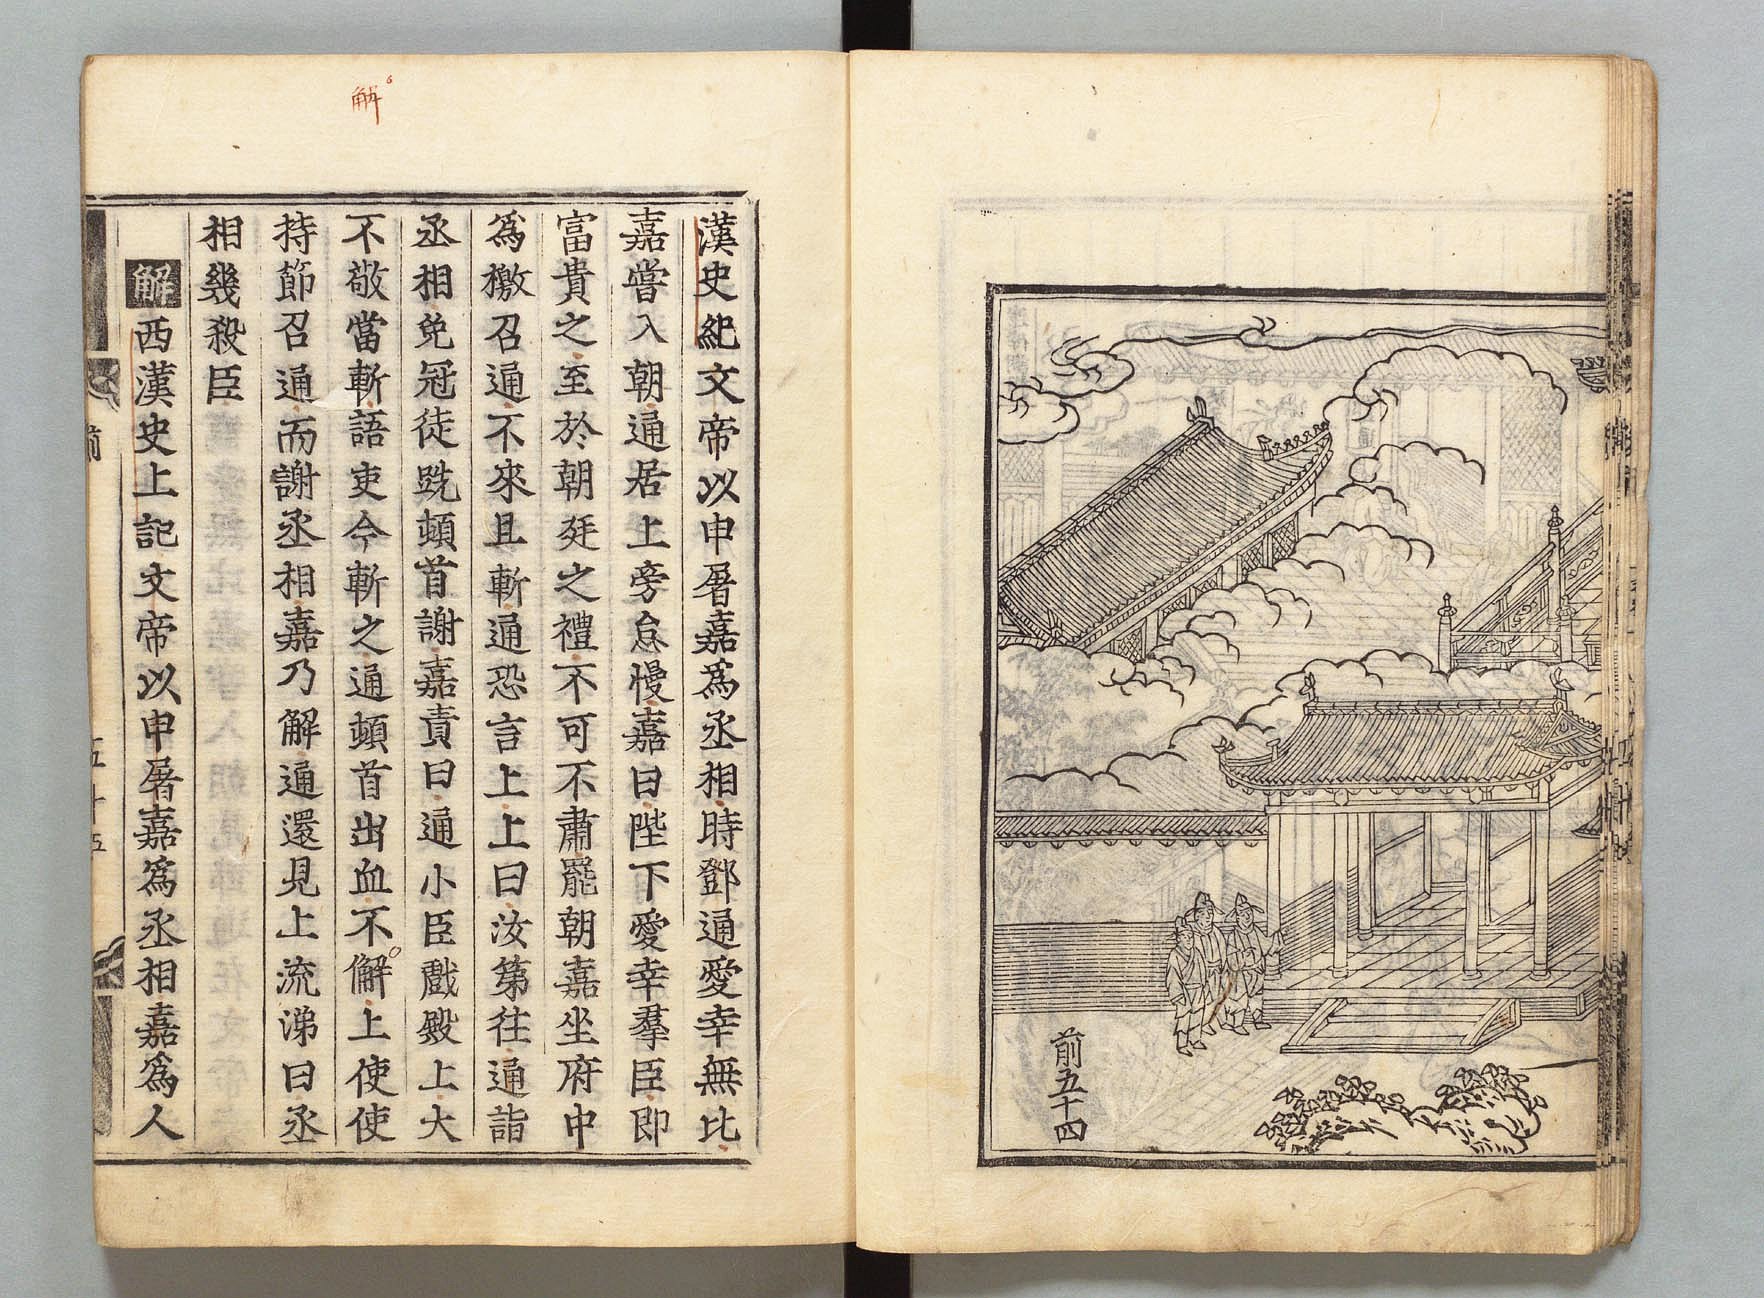 前五十四
解
漢史紀文帝以申屠嘉爲丞相時鄧通愛幸無比
嘉嘗入朝通居上旁怠慢嘉曰陛下愛幸羣臣即
富貴之至於朝廷之禮不可不肅罷朝嘉坐府中
爲檄召通不來且斬通恐言上上曰汝第往通詣
丞相免冠徒跣頓首謝嘉責曰通小臣戲殿上大
不敬當斬語吏今斬之通頓首出血不懈上使使
持節召通而謝丞相嘉乃解通還見上流涕曰丞
相幾殺臣
解西漢史上記文帝以申屠嘉爲丞相嘉爲人
前
五十五